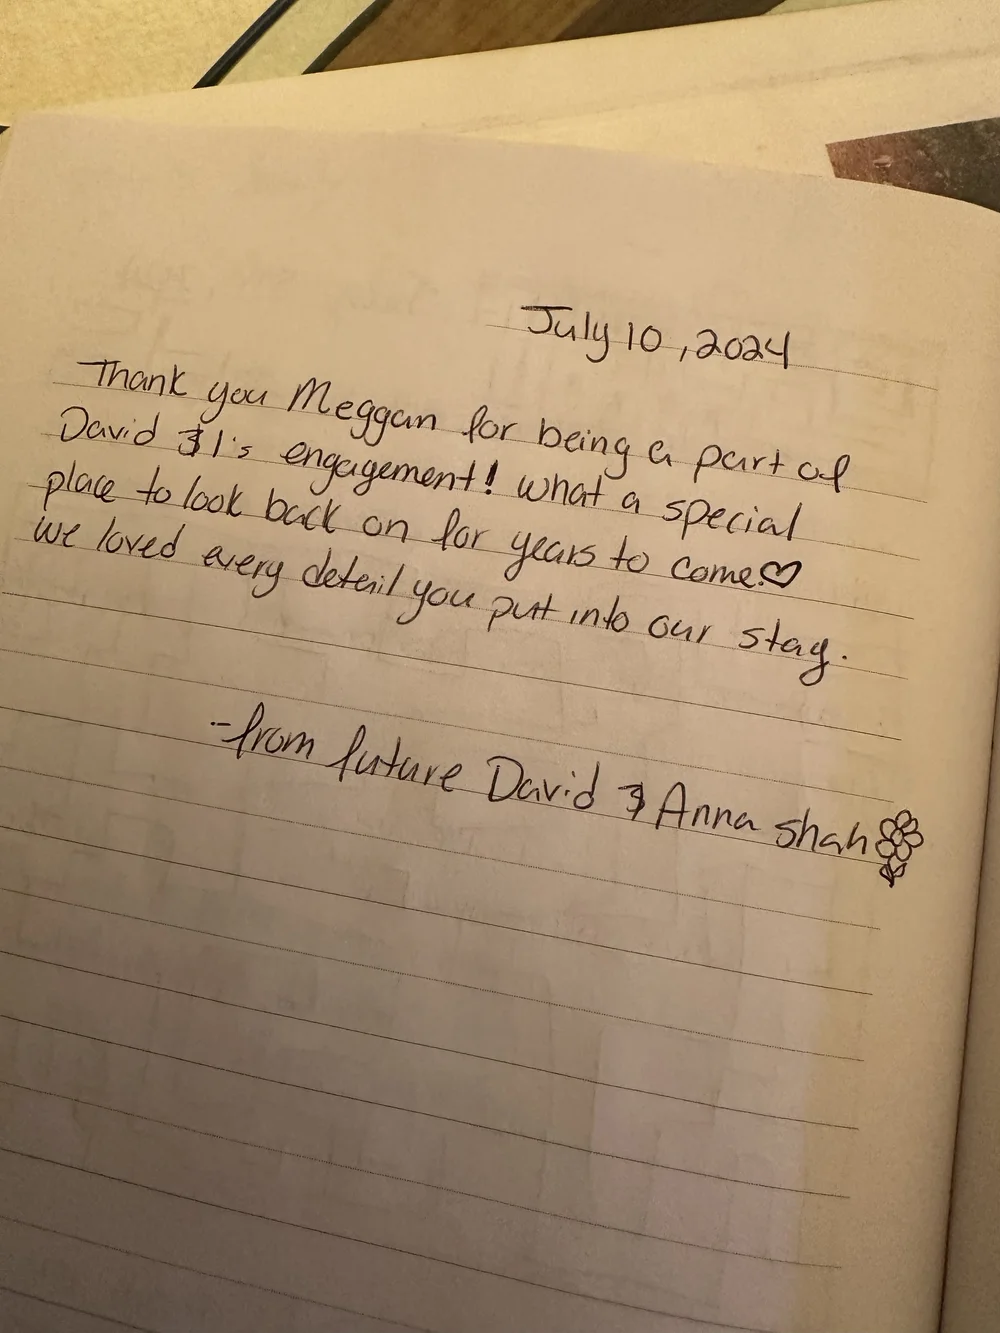 July 10, 2024
Thank you Meggan for being a part of
David & I's engagement! what a special
place to look back on for years to come.♡
we loved every detail you put into our stay.
-from future David & Anna shah